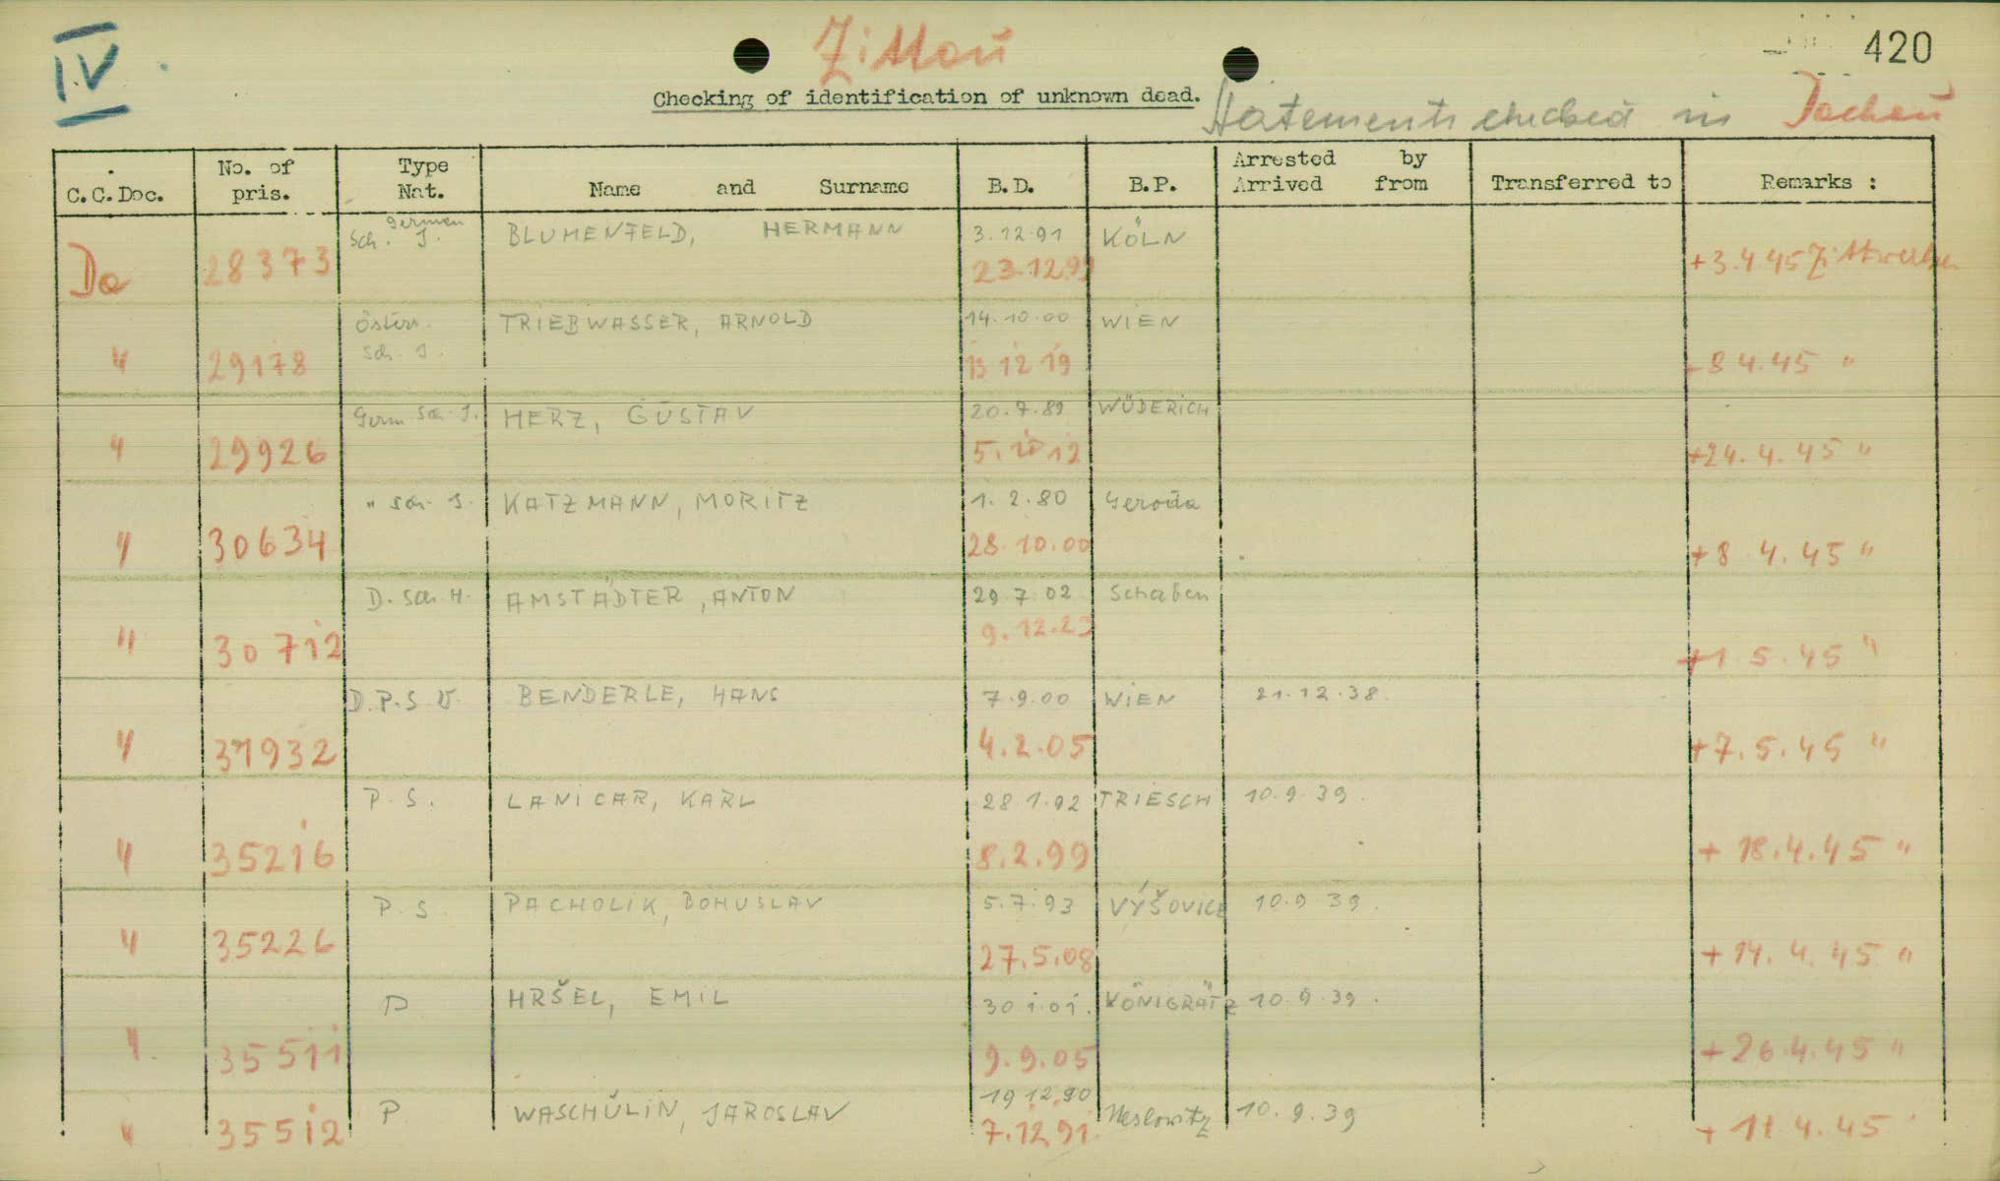 IV
Zittau
420
Checking of identification of unknown dead.
Statements checked in Dachau
C.C.Doc. No. of pris. Type Nat. Name and Surname B.D. B.P. Arrested by Arrived from Transferred to Remarks :
German
Sch. J. BLUMENFELD, HERMANN 3.12.91 KÖLN
Da 28373 23.12.99 +3.4 45 Zittwerke
Österr. TRIEBWASSER, ARNOLD 14.10.00 WIEN
Sch. J.
" 29178 13 12 19 +8 4.45 "
Germ Sch. J. HERZ, GUSTAV 20.7.89 WÜDERICH
" 29926 5. 10 12 +24.4.45 "
" Sch. J. KATZMANN, MORITZ 1.2.80 Geroda
" 30634 28.10.00 +8 4.45 "
D. Sch. H. AMSTÄDTER, ANTON 29 7 02 Schaben
" 30712 9.12.23 +1 5.45 "
D.P.S V. BENDERLE, HANS 7.9.00 WIEN 21.12.38.
" 31932 4.2.05 +7.5.45 "
P.S. LANICAR, KARL 28.1.92 TRIESCH 10.9.39.
" 35216 8.2.99 + 18.4.45 "
P.S. PACHOLIK, BOHUSLAV 5.7.93 VÝŠOVICE 10.9 39.
" 35226 27.5.08 + 14.4.45 "
P HRŠEL, EMIL 30 1.01. KÖNIGRÄTZ 10.9.39.
" 35511 9.9.05 +26.4.45 "
P. WASCHŮLIN, JAROSLAV 19 12.90 Neslowitz 10.9.39
" 35512 7.12 91. + 11 4.45